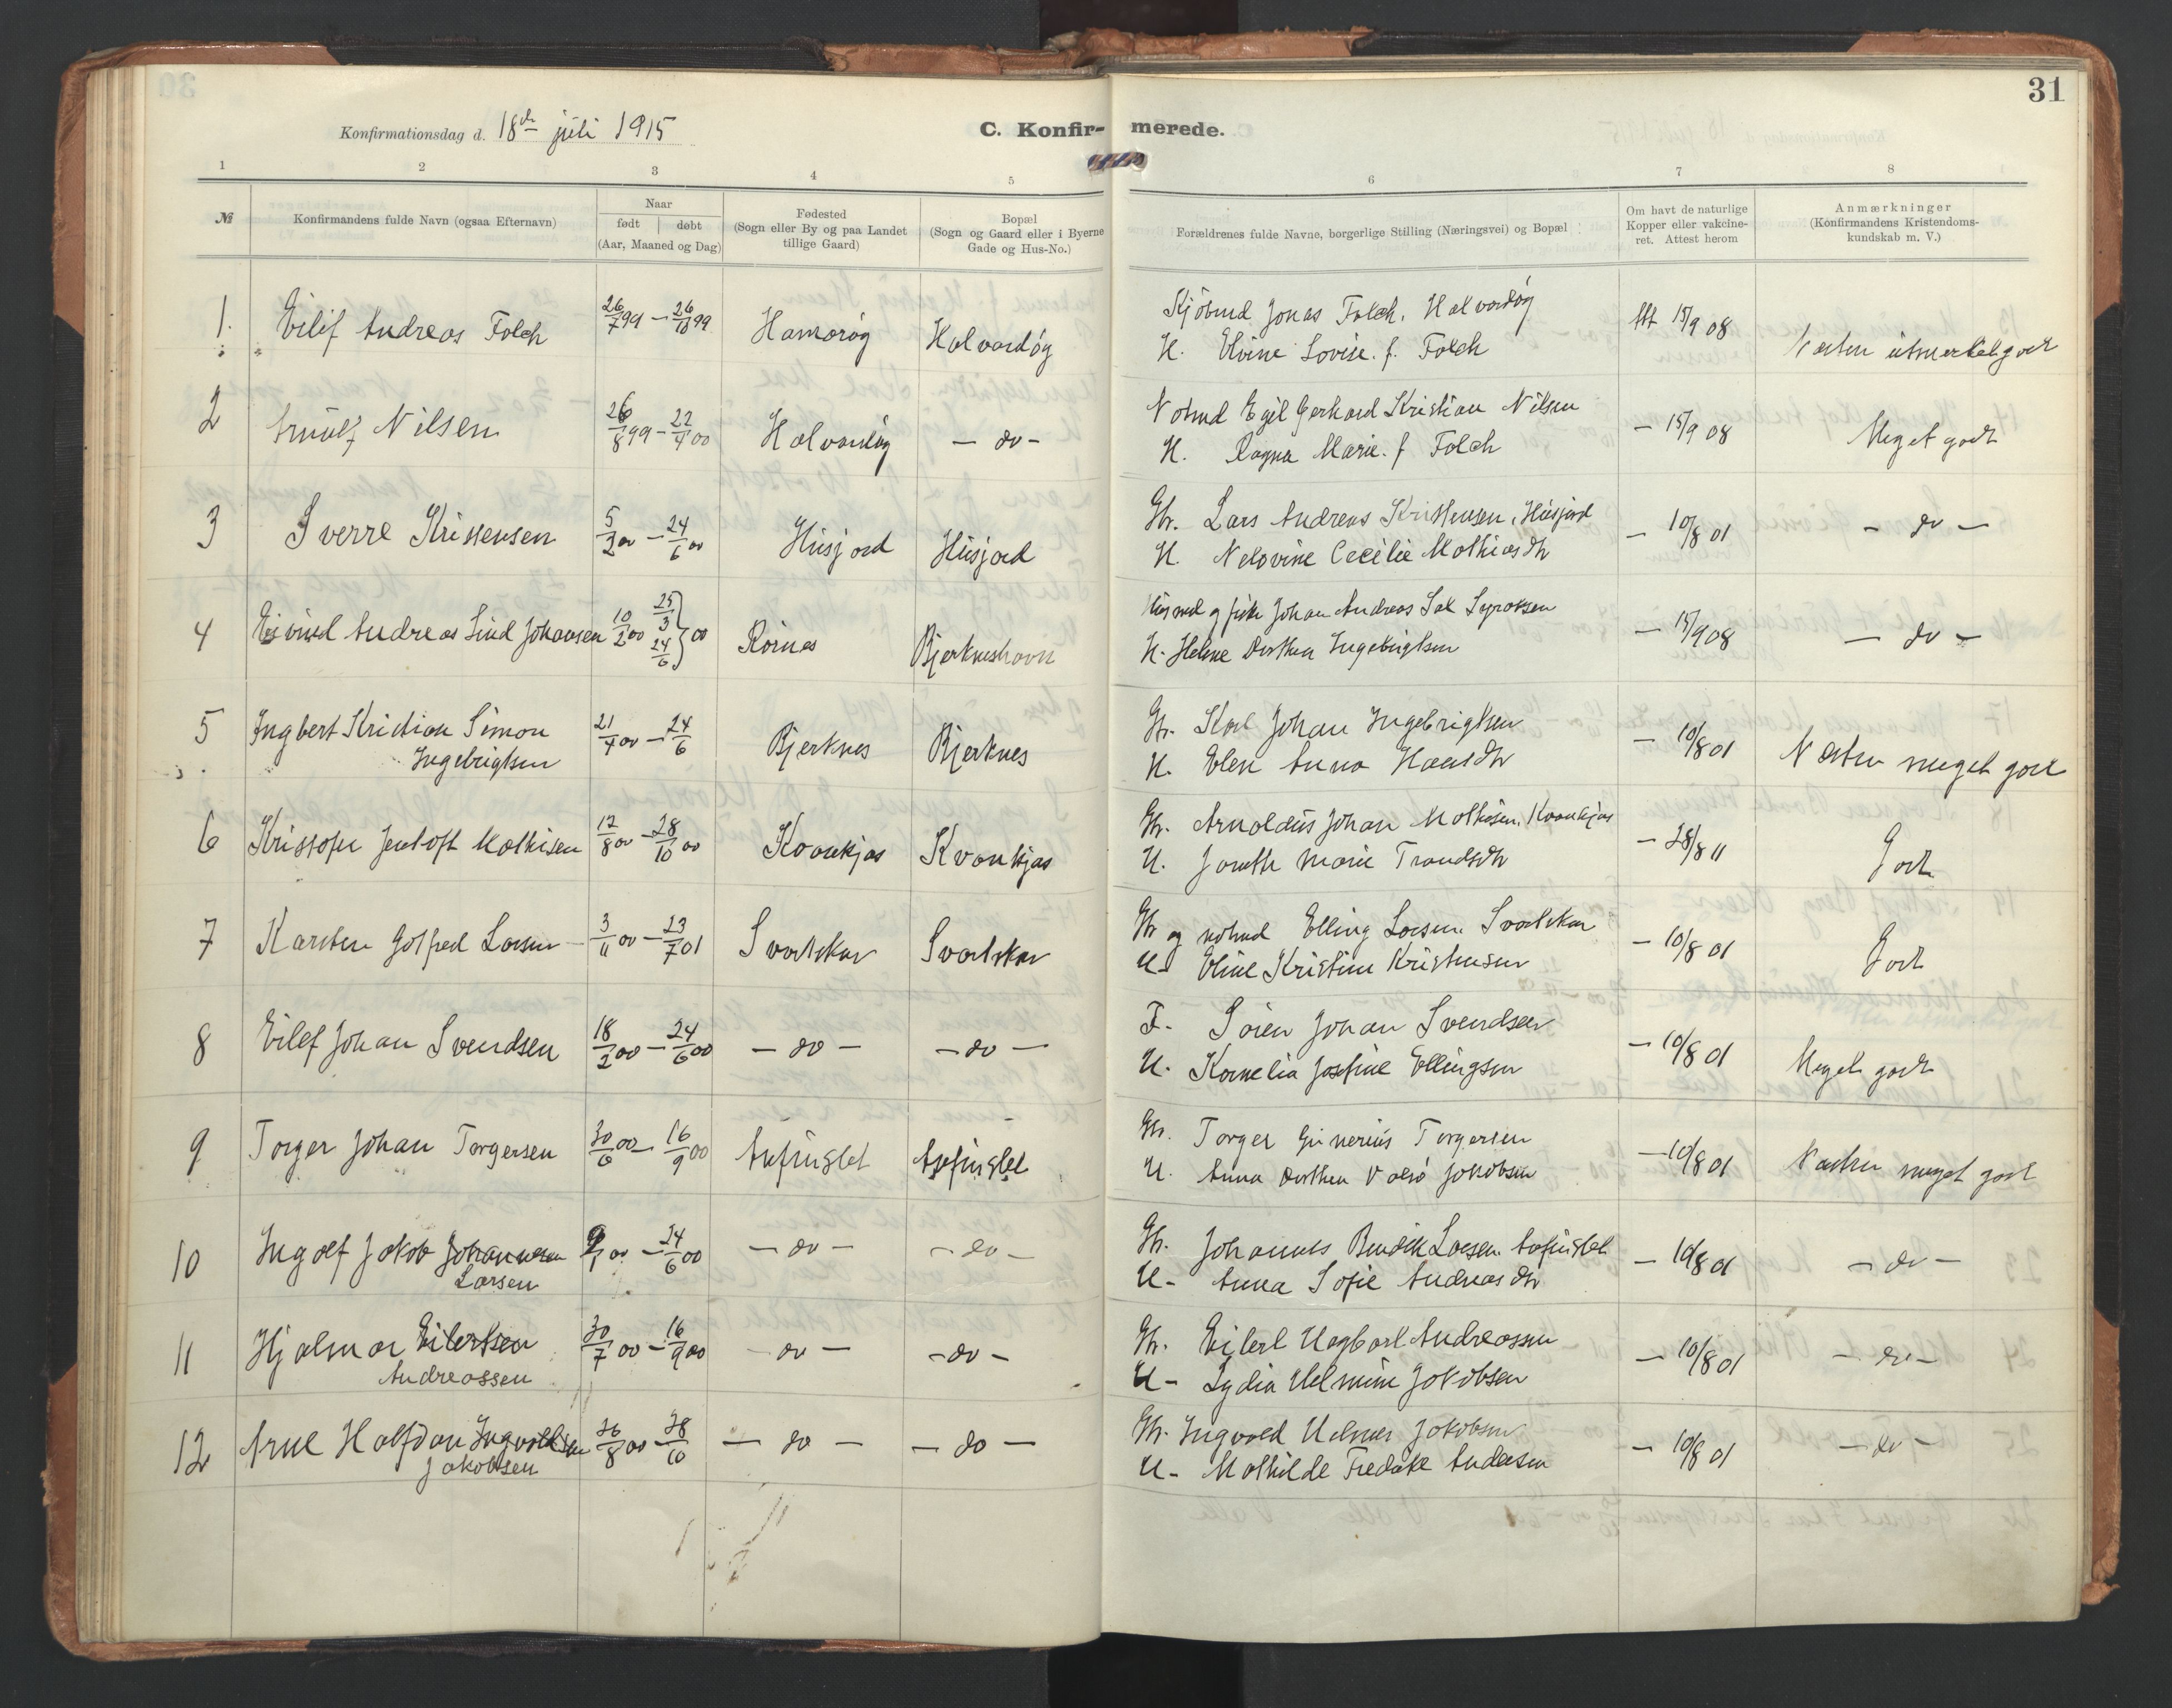 31
Konfirmationsdag d. 18de juli 1915
C. Konfirmerede.
1 2 3 4 5 6 7 8
№ Konfirmandens fulde Navn (ogsaa Efternavn) Naar født døbt (Aar, Maaned og Dag) Fødested (Sogn eller By og paa Landet tillige Gaard) Bopæl (Sogn og Gaard eller i Byerne Gade og Hus-No.) Forældrenes fulde Navne, borgerlige Stilling (Næringsvei) og Bopæl Om havt de naturlige Kopper eller vakcineret. Attest herom Anmærkninger (Konfirmandens Kristendomskundskab m. V.)
1. Eilif Andreas Folch 26/7 99 – 26/10 99 Hamarøy Halvardøy Kjöbmd Jonas Folch. Halvardöy Att 15/9 08 Næsten utmerket godt
H. Elvine Lovise. f. Folch
2 Arnulf Nilsen 26/8 99 – 22/4 00 Halvardöy – do – Notmd Egil Gerhard Kristian Nilsen – 15/9 08 Meget godt
H. Ragna Marie. f Folch
3 Sverre Kristensen 5/2 00 – 24/6 00 Husjord Husjord Gbr. Lars Andreas Kristensen, Husjord – 10/8 01 – do –
H. Nelovine Cecilie Mathiasdtr
4 Eivind Andreas Lind Johansen 10/2 00 25/3 24/6 } 00 Rörnes Bjerkneshavn Husmd og fisker Johan Andreas Sal – 15/9 08 – do –
H. Helene Dorthea Ingebrigtsen
5 Ingbert Kristian Simon 21/4 00 – 24/6 Bjerknes Bjerknes Gbr. Karl Johan Ingebrigtsen – 10/8 01 Næsten meget godt
Ingebrigtsen H. Elen Anna Hansdtr
6 Kristofer Jentoft Mathisen 12/8 00 – 28/10 00 Kvankjos Kvankjos Gbr. Arnoldus Johan Mathisen, Kvankjos – 28/8 11 Godt
H. Jonette Marie Trondsdtr
7 Karsten Gotfred Larsen – 3/11 00 – 23/7 01 Svartskar Svartskar Gbr og notmd Elling Larsen. Svartskar – 10/8 01 Godt
H – Eline Kristine Kristensen
8 Eilef Johan Svendsen 18/2 00 – 24/6 00 – do – – do – F. Sören Johan Svendsen – 10/8 01 Meget godt
H. Kornelia Josefine Ellingsen
9 Torger Johan Torgersen 30/6 00 – 16/9 00 Anfinslet Anfinslet Gbr. Torger Gunerius Torgersen – 10/8 01 Næsten meget godt
H. Anna Dorthea Jakobsen
10 Ingolf Jakob Johannesen 9/1 00 – 24/6 00 – do – – do – Gbr. Johannes Bendik Larsen. Anfinslet – 10/8 01 – do –
Larsen H – Anna Sofie Andreasdtr
11 Hjalmar Eilertsen 30/7 00 – 16/9 00 – do – – do – Gbr. Eilert Hagbart Andreassen – 10/8 01 – do –
Andreassen H – Lydia Helmine Jakobsen
12 Arne Halfdan Ingvaldsen 26/8 00 – 28/10 – do – – do – Gbr. Ingvald Helmer Jakobsen – 10/8 01 – do –
Jakobsen H – Mathilde Fredrike Andersen